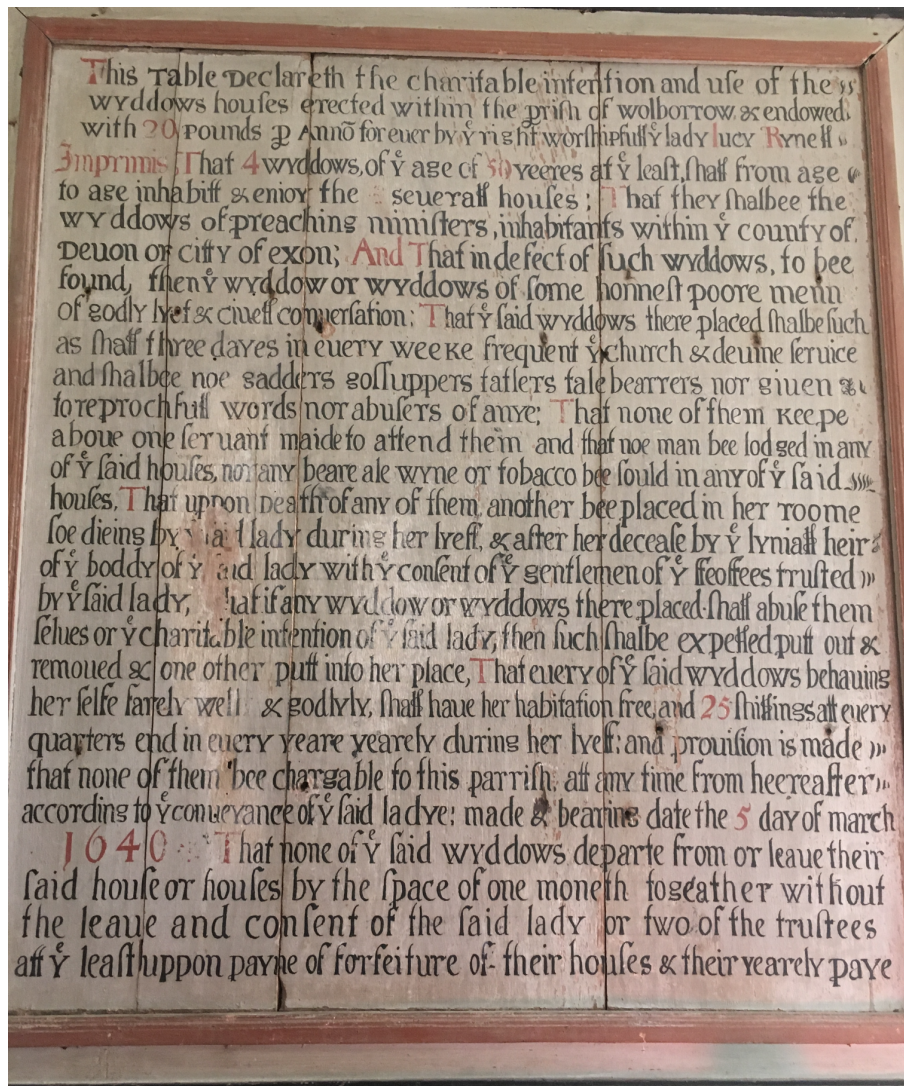 This Table Declareth the charitable intention and uſe of the
wyddows houſes erected within the priſh of wolborrow & endowed
with 20 pounds ꝑ Annō for euer by yͤ right worſhipfull yͤ lady lucy Rynell
Imprimis That 4 wyddows, of yͤ age of 50 yeeres at yͤ leaſt, ſhall from age
to age inhabitt & enioy the seuerall houſes; That they ſhalbee the
wyddows of preaching miniſters, inhabitants within yͤ county of
Deuon or citty of exon; And That in defect of ſuch wyddows, to bee
found, then yͤ wyddow or wyddows of ſome honneſt poore menn
of godly lyef & ciuell conuerſation; That yͤ ſaid wyddows there placed ſhalbe ſuch
as ſhall three dayes in euery weeke frequent yͤ church & deuine ſeruice
and ſhalbee noe gadders goſſuppers tatlers tale bearrers nor giuen
to reprochfull words nor abuſers of anye; That none of them Keepe
aboue one ſeruant maide to attend them and that noe man bee lodged in any
of yͤ ſaid houſes, nor any beare ale wyne or tobacco bee ſould in any of yͤ ſaid
houſes, That uppon Death of any of them, another bee placed in her roome
ſoe dieing by yͤ ſaid lady during her lyeff, & after her deceaſe by yͤ lyniall heir
of yͤ boddy of yͤ ſaid lady with yͤ conſent of yͤ gentlemen of yͤ ffeoffees truſted
by yͤ ſaid lady, hat if any wyddow or wyddows there placed ſhall abuſe them
ſelues or yͤ charitable intention of yͤ ſaid lady, then ſuch ſhalbe expelled putt out &
remoued & one other putt into her place, That euery of yͤ ſaid wyddows behauing
her ſelfe farely well & godlyly, ſhall haue her habitation free, and 25 ſhillings att euery
quarters end in euery yeare yearely during her lyeff; and prouiſion is made
that none of them bee chargable to this parriſh, att any time from heereafter
according to yͤ conueyance of yͤ ſaid ladye: made & bearing date the 5 day of march
1640 That none of yͤ ſaid wyddows departe from or leaue their
ſaid houſe or houſes by the ſpace of one moneth togeather without
the leaue and conſent of the ſaid lady or two of the truſtees
att yͤ leaſt uppon payne of forfeiture of their houſes & their yearely paye